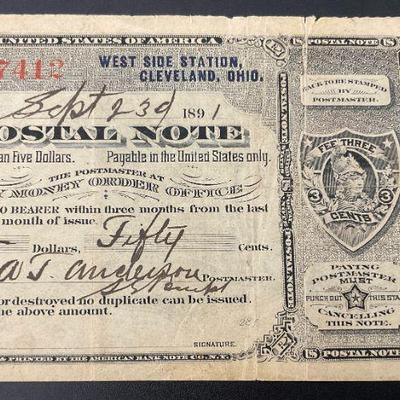 UNITED STATES OF AMERICA
POSTAL NOTE
7412
WEST SIDE STATION,
CLEVELAND, OHIO.
Sept 23d 1891
POSTAL NOTE
an Five Dollars. Payable in the United States only.
THE POSTMASTER AT
Y MONEY ORDER OFFICE
O BEARER within three months from the last
month of issue.
Dollars, Fifty Cents.
Anderson POSTMASTER.
or destroyed no duplicate can be issued.
he above amount.
287
SIGNATURE.
& PRINTED BY THE AMERICAN BANK NOTE CO. N.Y.
US POSTAL NOTE US
BACK TO BE STAMPED
BY
POSTMASTER.
FEE THREE
3 3
CENTS
PAYING
POSTMASTER
MUST
PUNCH OUT THIS STAR
CANCELLING
THIS NOTE.
US POSTAL NOTE US
POSTAL NOTE